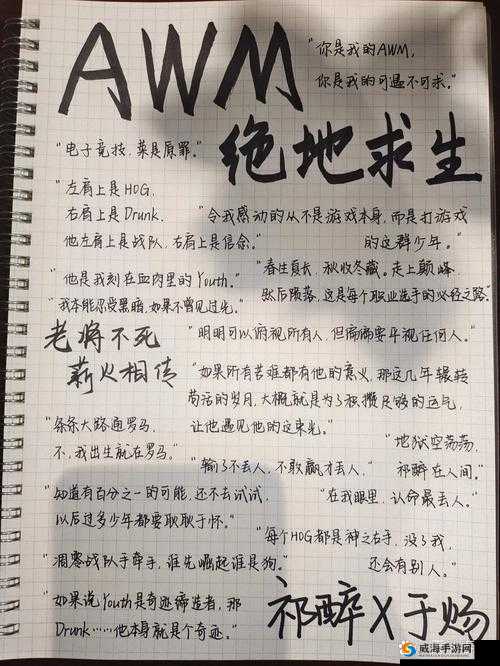 AWM
"你是我的AWM,
你是我的可遇不可求."
绝地求生
"电子竞技,菜是原罪."
"左肩上是HOG,
右肩上是Drunk,
他左肩上是战队,右肩上是信命."
"令我感动的从不是游戏本身,而是打游戏
的这群少年."
"他是我刻在血肉里的Youth."
"春生夏长,秋收冬藏.走上巅峰,
然后陨落,这是每个职业选手的必经之路."
"我本能忍受黑暗,如果不曾见过光."
老将不死
薪火相传
"明明可以俯视所有人,但偏偏要平视任何人."
"如果所有苦难都有他的意义,那这几年辗转
苟活的岁月,大概就是为了积攒足够的运气,
让他遇见他的这束光."
"条条大路通罗马,
不,我出生就在罗马."
"地狱空荡荡,
祁醉在人间."
"输了不丢人,不敢赢才丢人."
"知道有百分之一的可能,还不去试试,
以后过多少年都要耿耿于怀."
"在我眼里,认命最丢人."
"每个HOG都是神之右手,没了我,
还会有别人."
"凋零战队手牵手,谁先崛起谁是狗."
"如果说Youth是奇迹缔造者,那
Drunk……他本身就是个奇迹."
祁醉X于炀
威海手游网